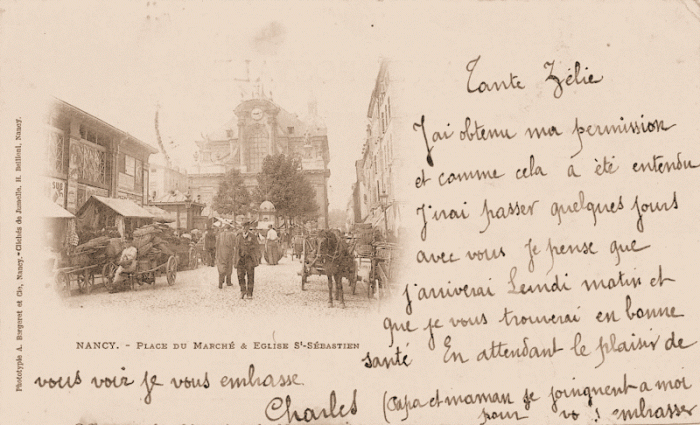 Tante Zélie
J'ai obtenu ma permission
et comme cela a été entendu
J'irai passer quelques jours
avec vous Je pense que
j'arriverai Lundi matin et
que je vous trouverai en bonne
santé En attendant le plaisir de
vous voir je vous embrasse
Charles (Papa et maman se joingnent a moi
pour vous embrasser
NANCY. - PLACE DU MARCHÉ & EGLISE St-SÉBASTIEN
Phototypie A. Bergeret et Cie, Nancy. - Clichés de Jumelle, H. Bellieni, Nancy.